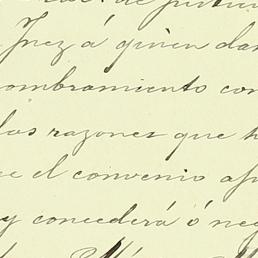 Juez á quien dar
ombramiento con
las razones que h
e el convenio a
y concederá ó neg